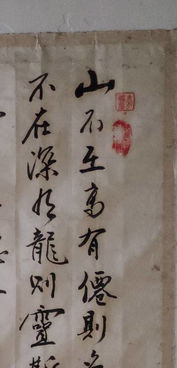 山不在高有僊則名
不在深有龍則靈斯